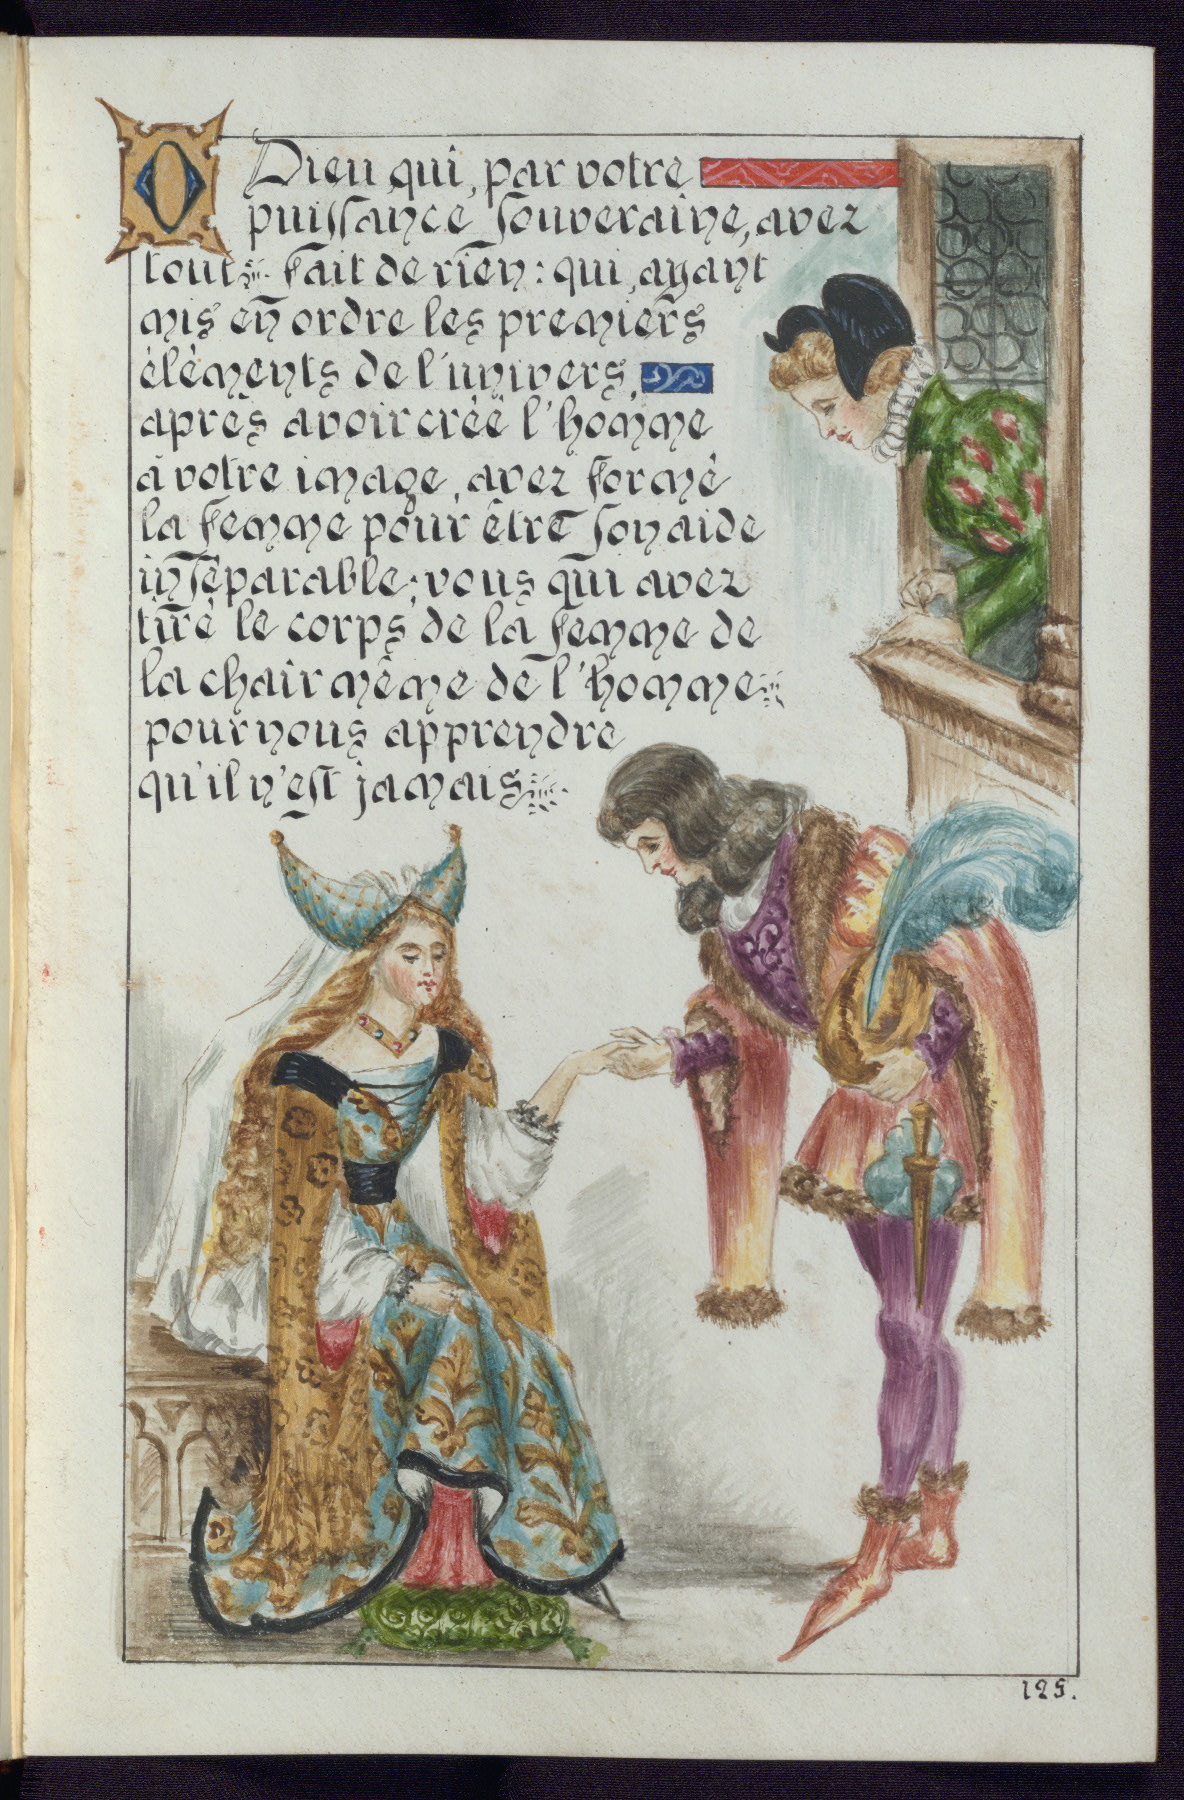 O Dieu qui, par votre
puissance souveraine, avez
tout fait de rien : qui, ayant
mis en ordre les premiers
éléments de l'univers,
après avoir créé l'homme
à votre image, avez formé
la femme pour être son aide
inséparable; vous qui avez
tiré le corps de la femme de
la chair même de l'homme
pour nous apprendre
qu'il n'est jamais
125.